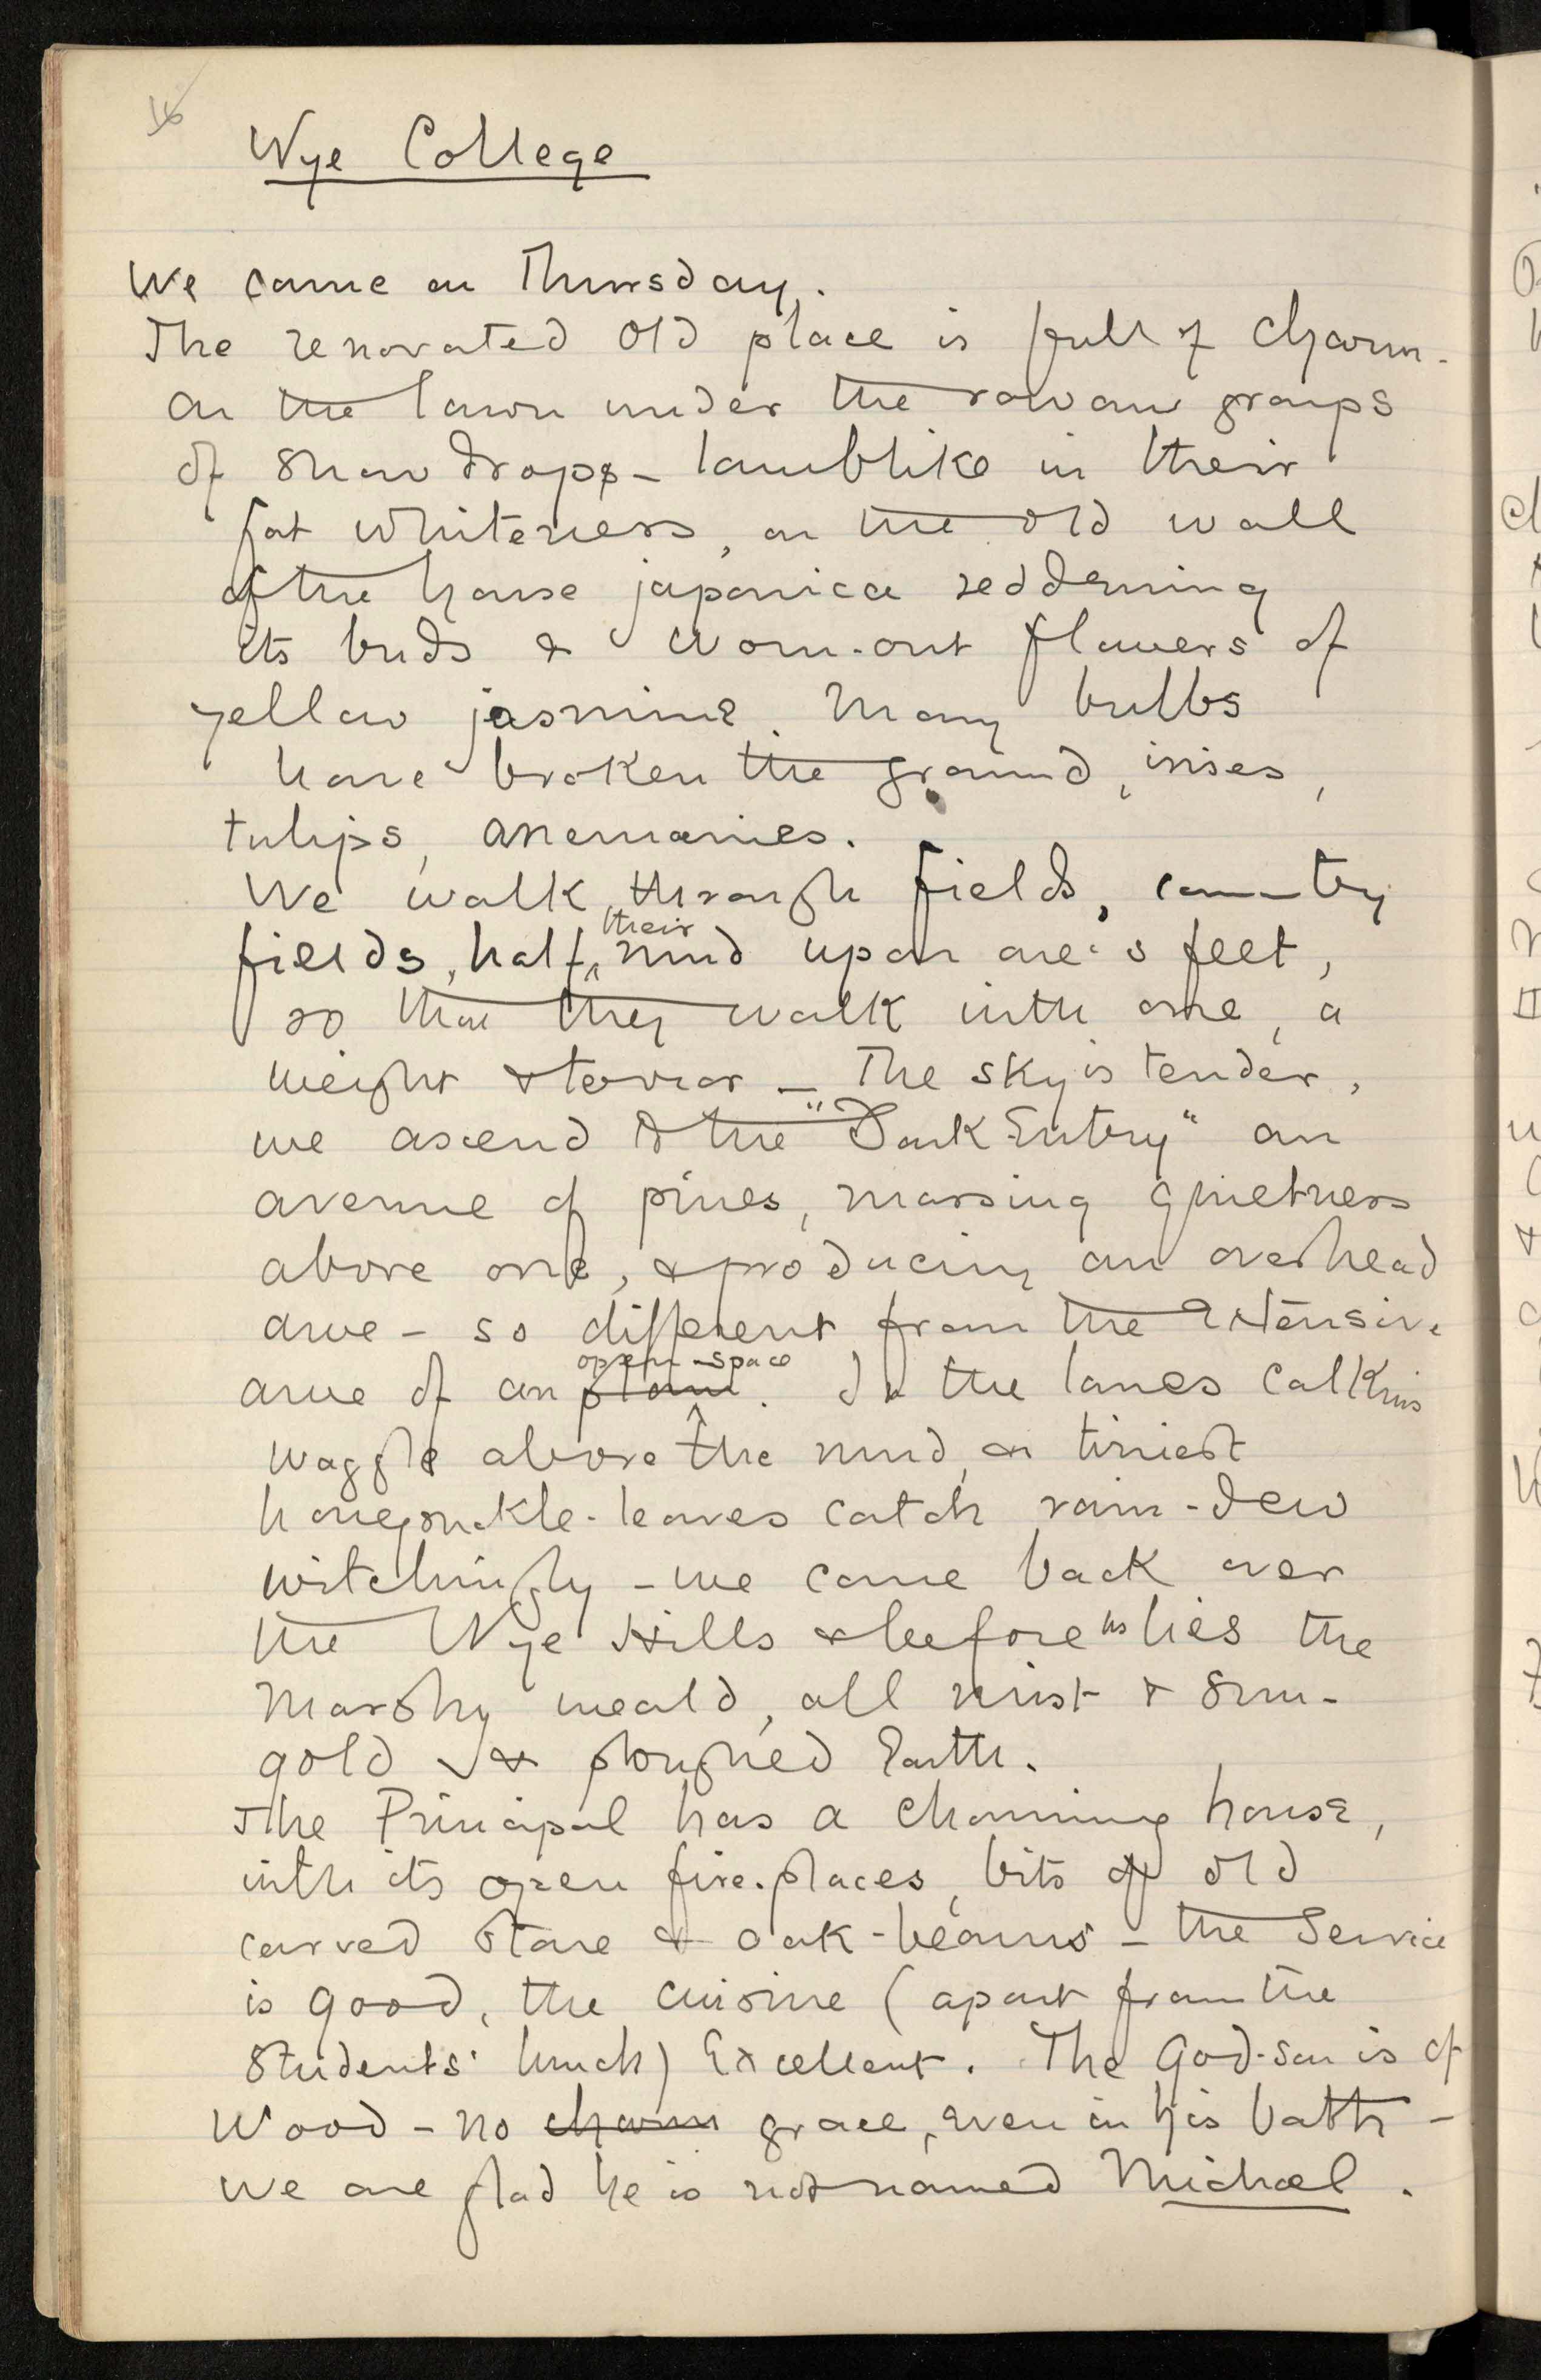 16
Wye College
We came on Thursday.
The renovated old place is full of charm.
On the lawn under the rowan groups
of snowdrops - lamblike in their
fat whiteness, on the old wall
of the house japonica reddening
its buds & worn-out flowers of
yellow jasmine. Many bulbs
have broken the ground, irises,
tulips, anemonies.
We walk through fields, country
fields, half their mud upon one's feet,
so that they walk with one, a
weight & terror - The sky is tender,
we ascend to the "Dark Entry" an
avenue of pines, massing quietness
above one, & producing an overhead
awe - so different from the extensive
awe of an plain open-space. In the lanes catkins
waggle above the mud, & tiniest
honeysuckle-leaves catch rain-dew
witchingly - we come back over
the Wye Hills & before us lies the
Marshy weald, all mist & sun-
gold & ploughed Earth.
The Principal has a charming house,
with its open fire-places, bits of old
carved stone & oak-beams - the Service
is good, the cuisine (apart from the
Students' lunch) Excellent. The God-son is of
Wood - no charm grace, even in his bath -
we are glad he is not named Michael.